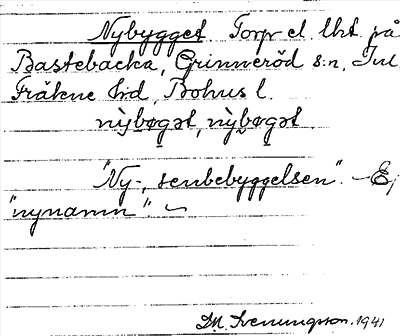 Nybygget. Torp el. lht. på
Bastebacka, Grinneröd s:n, Inl.
Fräkne hd, Bohus l.
nỳbøgət, nỳbøgət.
"Ny-, senbebyggelsen". – Ej
"nynamn". –
DM. Svenungsson. 1941